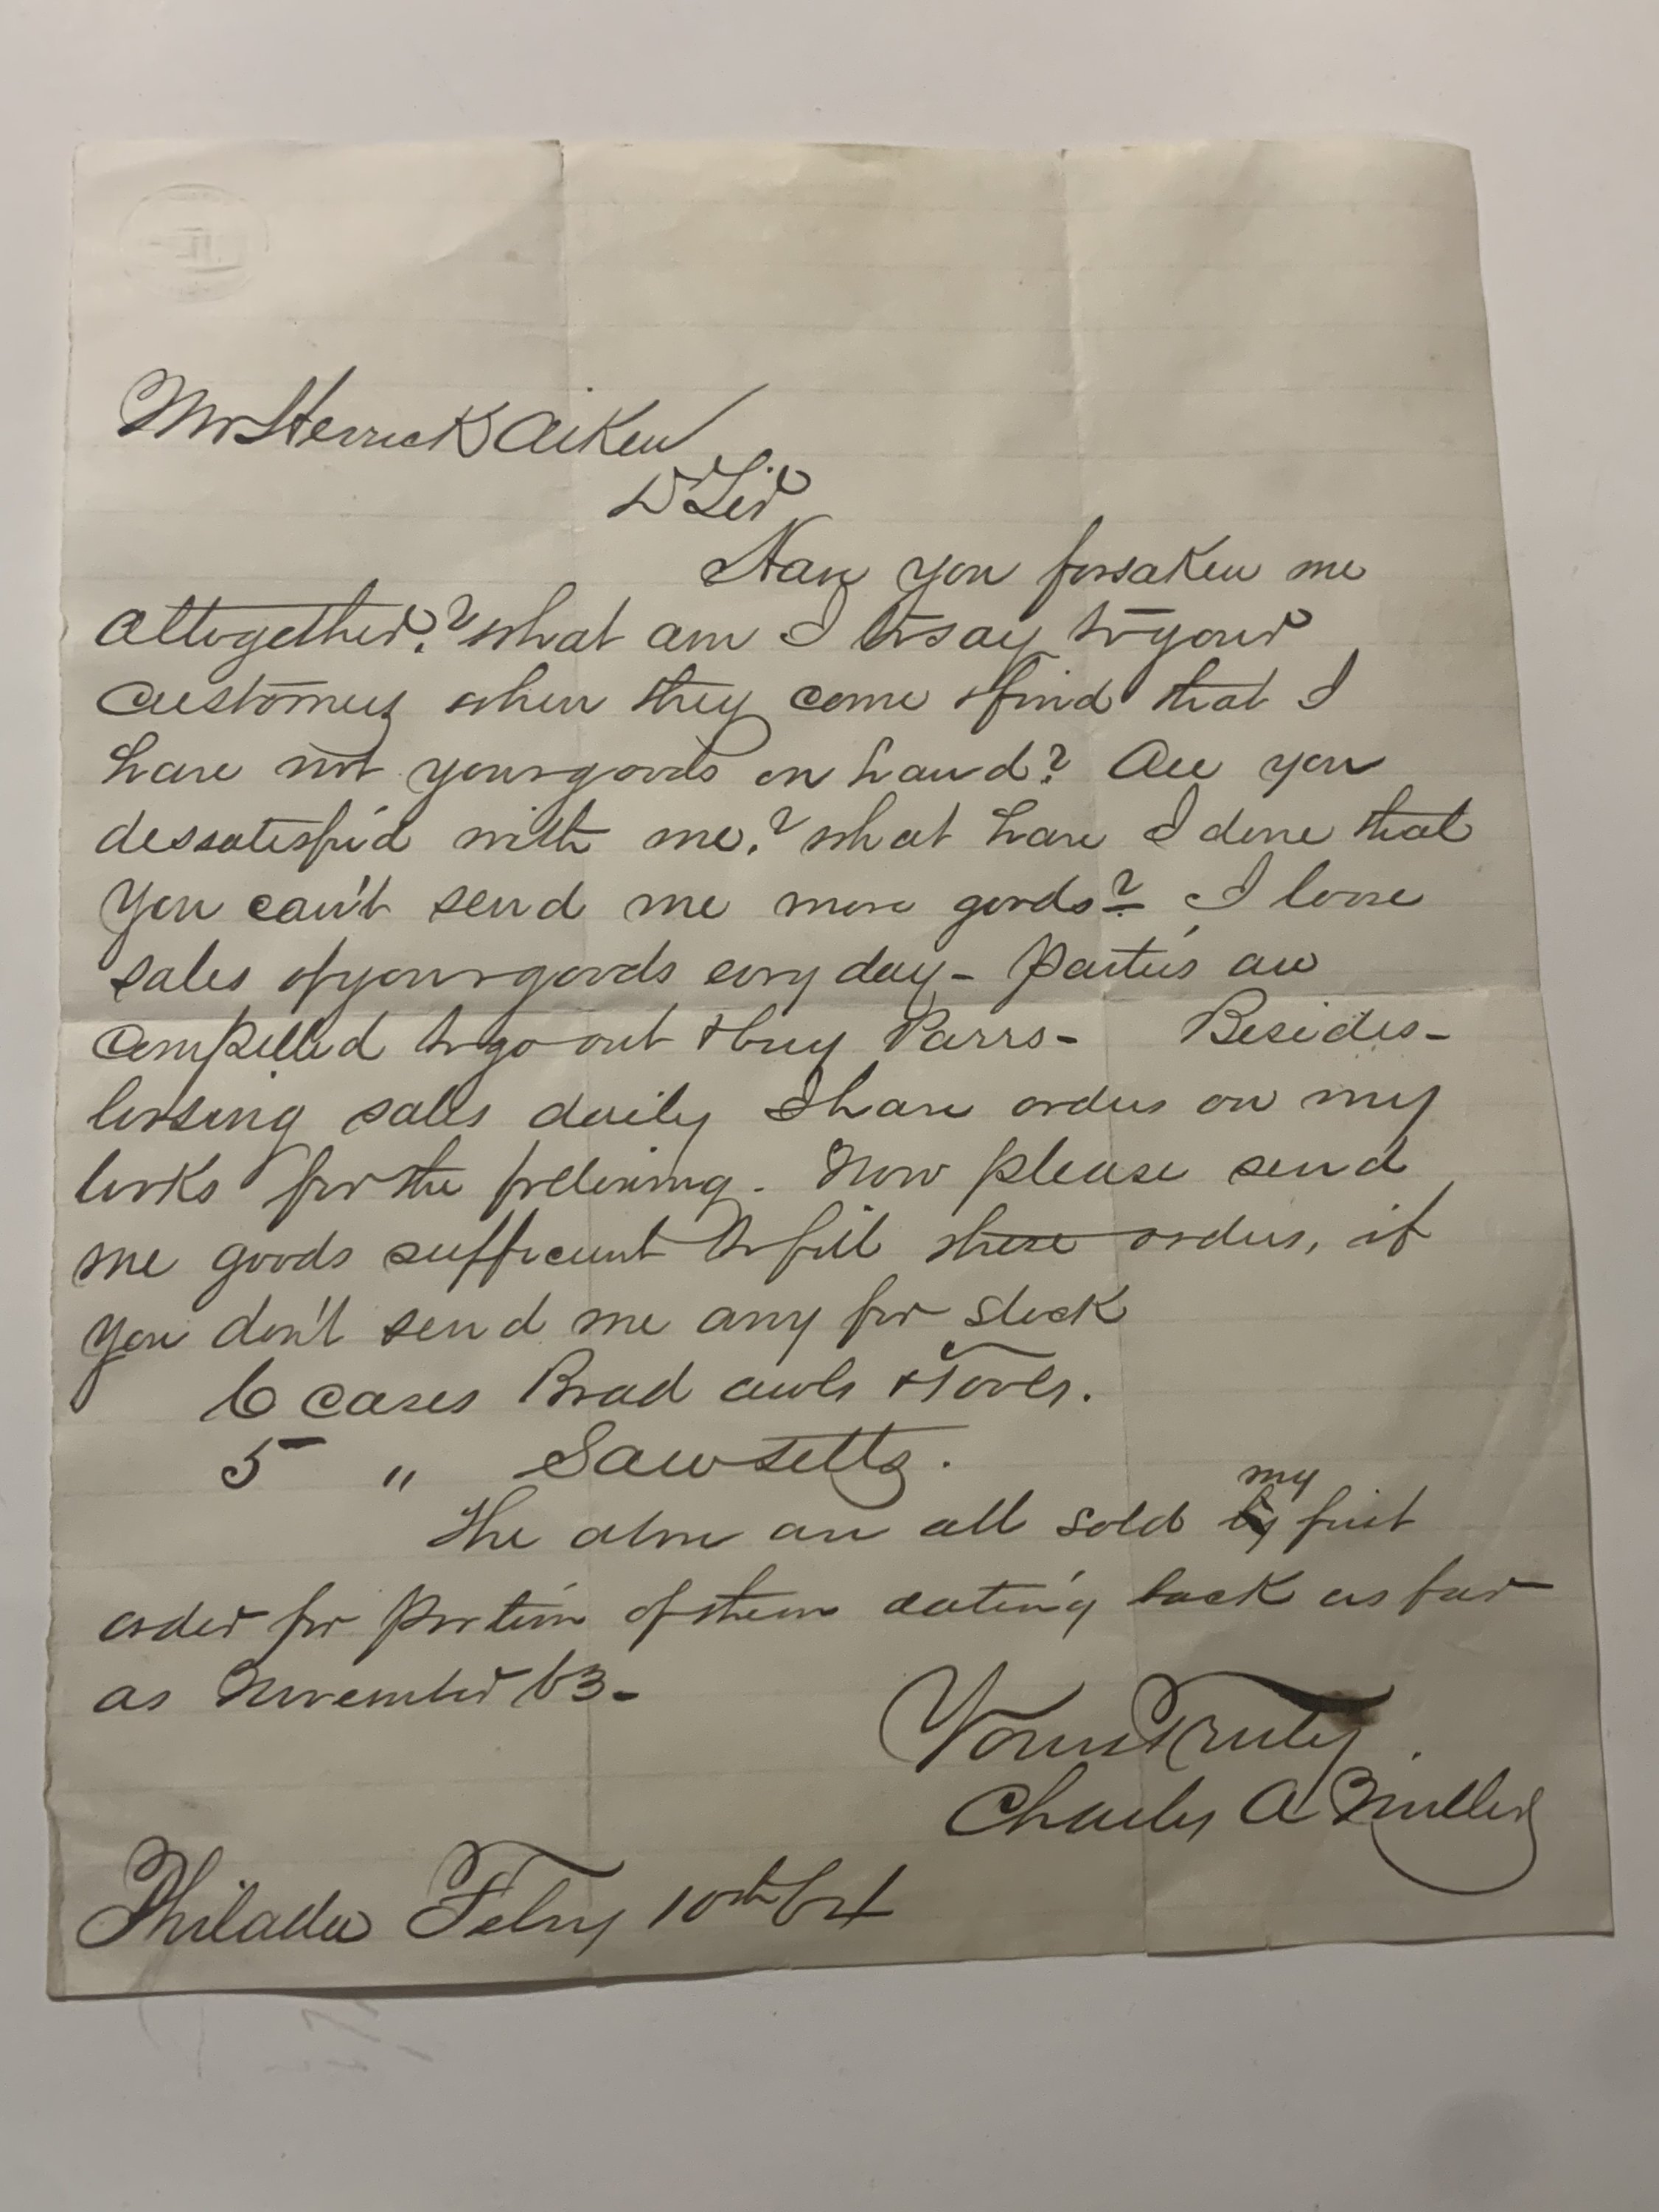 Mr Herrick Aiken
D Sir
Have you forsaken me
altogether? What am I to say to your
customers when they come & find that I
have not your goods on hand? Are you
dessatisfi'd with me? What have I done that
you can't send me more goods? I loose
sales of your goods every day - Parties are
compelled to go out & buy Parrs - Besides -
loosing sales daily I have orders on my
books for the following. Now please send
me goods sufficient to fill these orders, if
you don't send me any for stock
6 cases Brad awls & Tools.
5 " Sawsetts.
my
The above are all sold by first
order for portion of them dating back as far
as November 63 -
Yours Truly
Charles A Miller
Philada Feby 10th 64